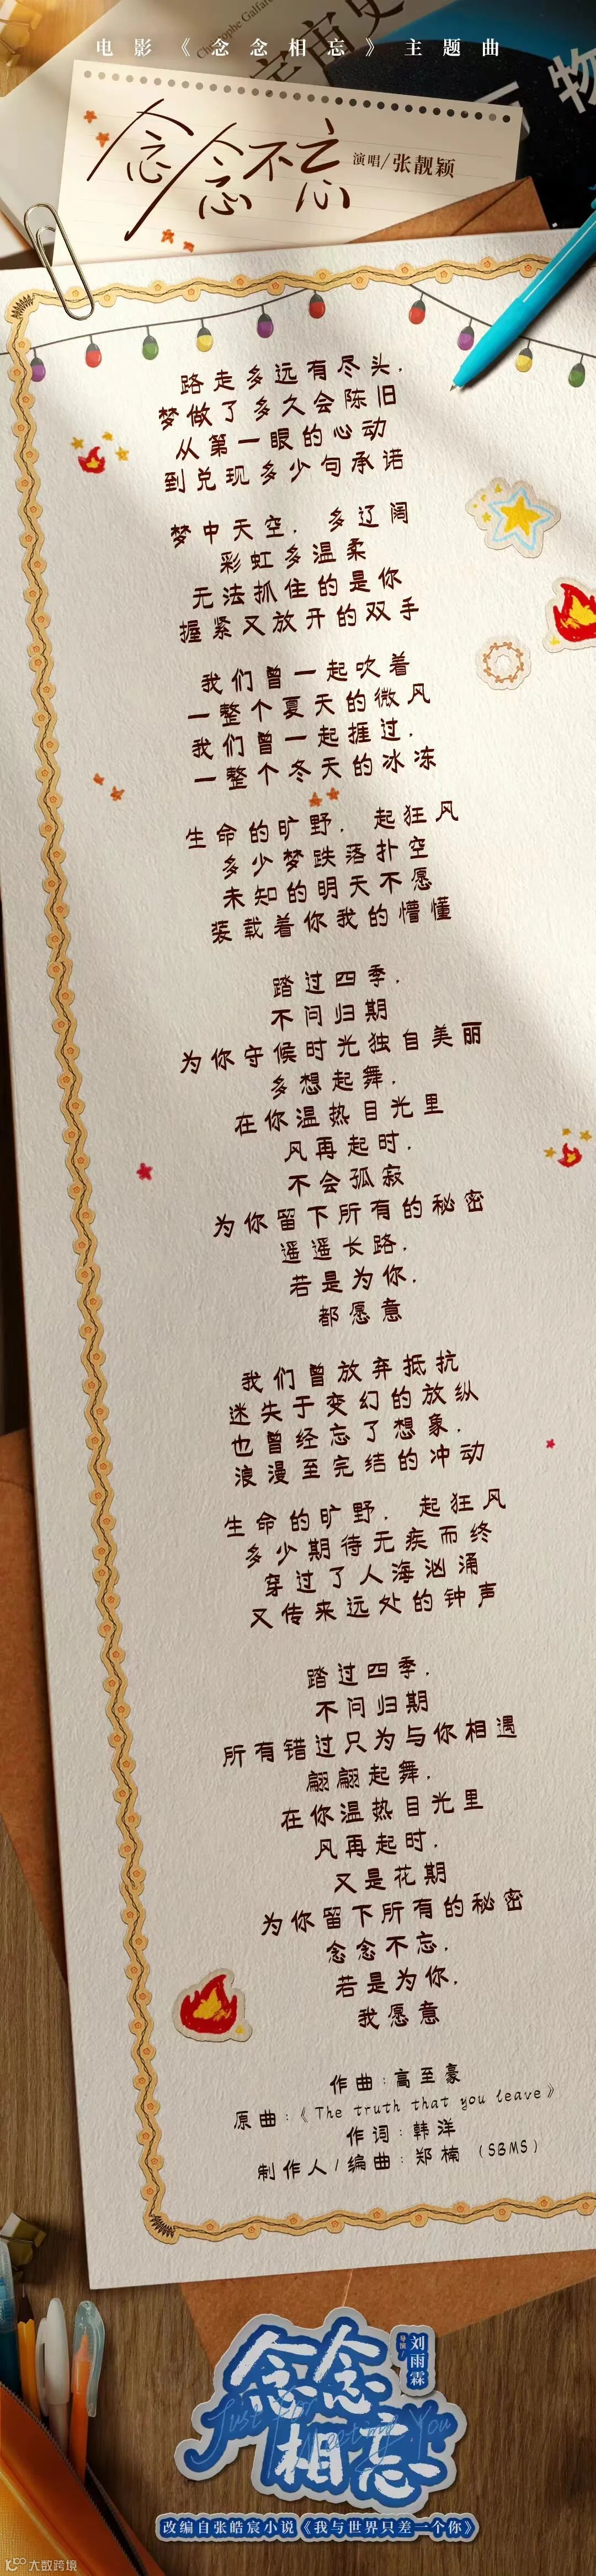 电影《念念相忘》主题曲
Christophe Galfard
宇宙史
物
念念不忘
演唱/张靓颖
路走多远有尽头，
梦做了多久会陈旧
从第一眼的心动
到兑现多少句承诺
梦中天空，多辽阔
彩虹多温柔
无法抓住的是你
握紧又放开的双手
我们曾一起吹着
一整个夏天的微风
我们曾一起捱过，
一整个冬天的冰冻
生命的旷野，起狂风
多少梦跌落扑空
未知的明天不愿
装载着你我的懵懂
踏过四季，
不问归期
为你守候时光独自美丽
多想起舞，
在你温热目光里
风再起时，
不会孤寂
为你留下所有的秘密
遥遥长路，
若是为你，
都愿意
我们曾放弃抵抗
迷失于变幻的放纵
也曾经忘了想象，
浪漫至完结的冲动
生命的旷野，起狂风
多少期待无疾而终
穿过了人海汹涌
又传来远处的钟声
踏过四季，
不问归期
所有错过只为与你相遇
翩翩起舞，
在你温热目光里
风再起时，
又是花期
为你留下所有的秘密
念念不忘，
若是为你，
我愿意
作曲：高至豪
原曲：《The truth that you leave》
作词：韩洋
制作人/编曲：郑楠（SBMS）
念念相忘
Just For Meeting You
导演/刘雨霖
改编自张皓宸小说《我与世界只差一个你》
大数跨境